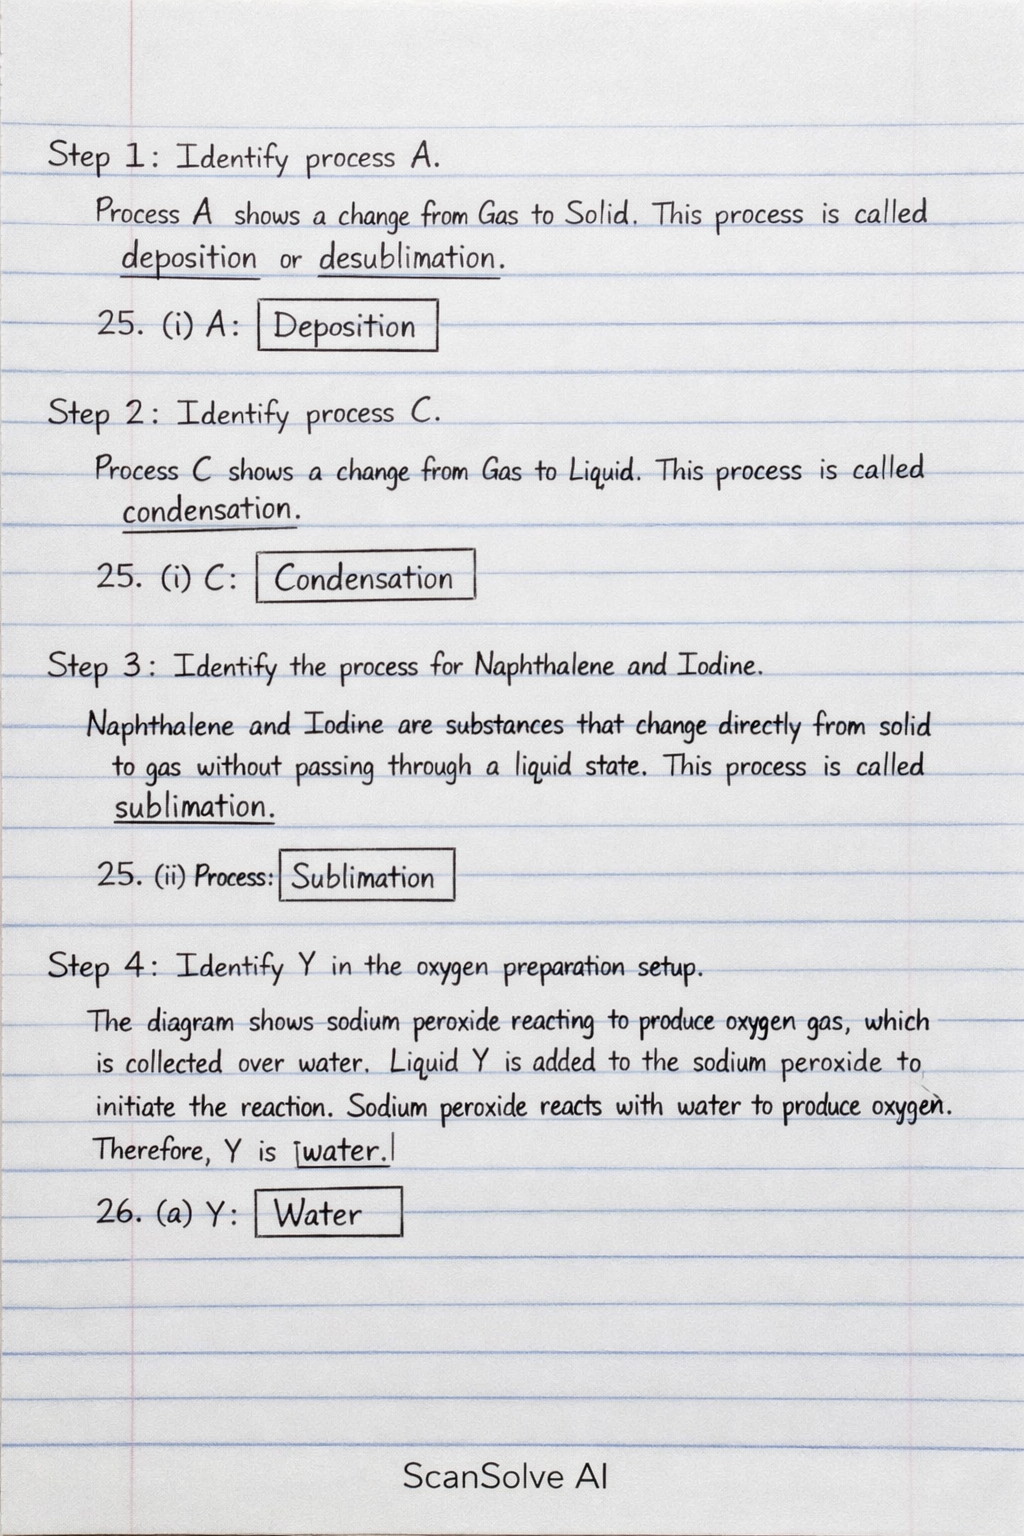 Step 1: Identify process A.
Process A shows a change from Gas to Solid. This process is called
deposition or desublimation.
25. (i) A: Deposition
Step 2: Identify process C.
Process C shows a change from Gas to Liquid. This process is called
condensation.
25. (i) C: Condensation
Step 3: Identify the process for Naphthalene and Iodine.
Naphthalene and Iodine are substances that change directly from solid
to gas without passing through a liquid state. This process is called
sublimation.
25. (ii) Process: Sublimation
Step 4: Identify Y in the oxygen preparation setup.
The diagram shows sodium peroxide reacting to produce oxygen gas, which
is collected over water. Liquid Y is added to the sodium peroxide to
initiate the reaction. Sodium peroxide reacts with water to produce oxygen.
Therefore, Y is water.
26. (a) Y: Water
ScanSolve AI